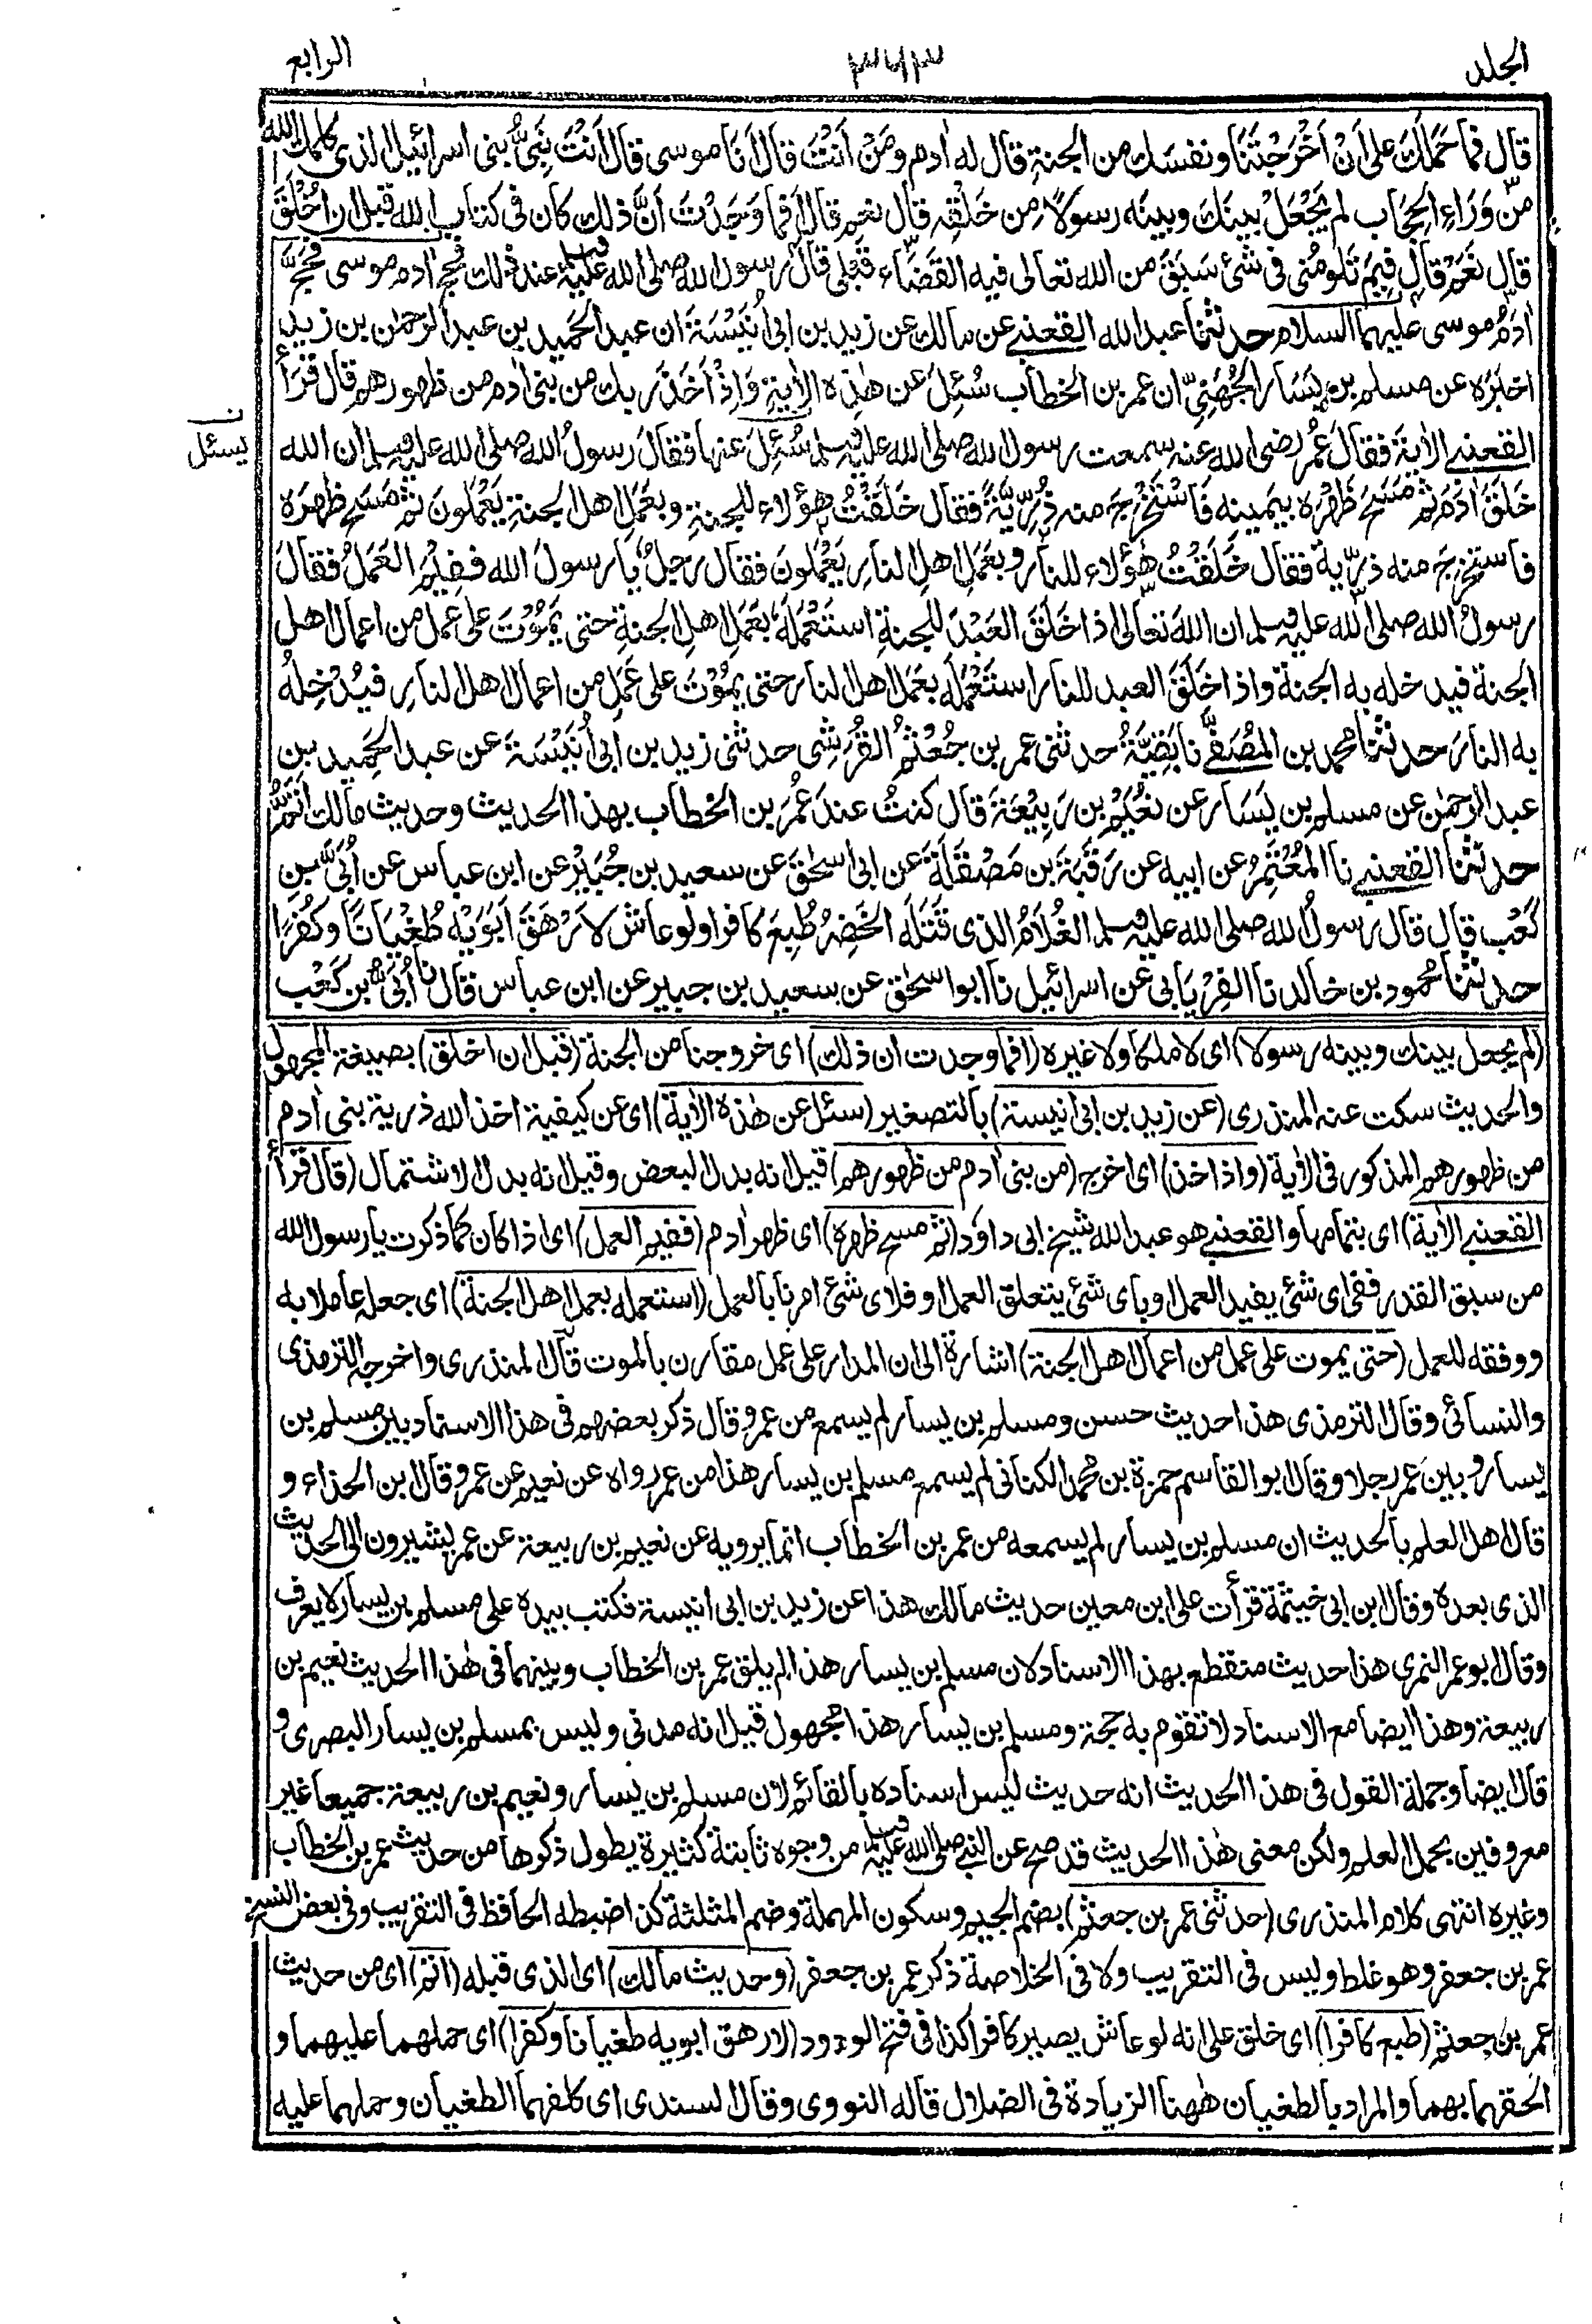 الجلد
٣٦٣
الرابع
قال فما حَمَلَكَ على أنْ أَخْرَجْتَنَا ونفسَك من الجنةِ قال له اٰدم ومَنْ أنْتَ قال أنَا موسى قال أَنْتَ نَبِىُّ بنى اسرائيل الذى كلمك الله
مِنْ وَرَاءِ الحِجَاب لم يَجْعَلْ بينَك وبينَه رسولًا مِن خَلْقِه قال نعم قال أَفَمَا وَجَدْتَ أنَّ ذلك كان فى كتاب الله قبل ان اُخْلَقَ
قال نَعَمْ قال فِيمَ تَلُومُنِى فى شئ سَبَقَ من الله تعالى فيه القَضَاء قَبْلِى قال رسول الله صلى الله عليه وسلم عند ذلك فَحَجَّ اٰدم موسى فحَجَّ
اٰدَمُ موسى عليهما السلام حدثنا عبد الله القعنبى عن مالك عن زيد بن ابى أُنَيْسَةَ ان عبد الحَمِيد بن عبد الرحمٰن بن زيد
اخبَرَه عن مسلم بن يَسَار الجُهَنِىِّ ان عمر بن الخطاب سُئِلَ عن هٰذِه الاٰية وَإِذْ أَخَذَ ربك من بنى اٰدم من ظهورهم قال قَرَأَ
القعنبى الاٰيةَ فقالَ عُمر رضى الله عنه سمعت رسول الله صلى الله عليه وسلم سُئِلَ عنها فقالَ رسولُ الله صلى الله عليه وسلم ان الله
يسئل
خَلَقَ اٰدَمَ ثم مَسَحَ ظَهْرَه بيمينه فَاسْتَخْرَجَ منه ذُرِّيَّةً فقال خَلَقْتُ هؤلاء للجنةِ وبعَمَلِ اهل الجنةِ يَعْمَلُونَ ثم مَسَح ظهرَه
فاستخرج منه ذرّيةً فقال خَلَقْتُ هٰؤلاء للنار وبعَمَلِ اهلِ النارِ يَعْمَلُونَ فقال رجلٌ يا رسولَ الله ففِيْمَ العَمَلُ فقالَ
رسولُ الله صلى الله عليه وسلم ان اللهَ تعالى اذا خَلَقَ العَبْدَ للجنةِ استَعْمَلَه بعَمَلِ اهلِ الجنةِ حتى يَمُوْتَ على عملٍ من اعمال اهل
الجنة فيدخله به الجنةَ واذا خَلَقَ العبد للنار استَعْمَلَه بعَمَل اهل النار حتى يمُوْتَ على عَمَلٍ من اعمال اهل النارِ فيُدْخِلُه
به النارَ حدثنا محمد بن المُصَفَّى نا بَقِيَّةُ حدثنى عمر بن جُعْثُم القُرَشِى حدثنى زيد بن ابى أُنَيْسَةَ عن عبد الحَمِيد بن
عبد الرحمٰن عن مسلم بن يَسَار عن نُعَيْم بن رَبِيْعَةَ قال كنتُ عندَ عُمَرَ بن الخطاب بهذا الحديث وحديث مالك اَتَمُّ
حدثنا القعنبى نا المُعْتَمِرُ عن ابيه عن رَقَبَةَ بن مَصْقَلَةَ عن ابى اسحٰقَ عن سعيد بن جُبَيْر عن ابن عباس عن أُبَىِّ بن
كَعْب قال قال رسولُ الله صلى الله عليه وسلم الغُلَامُ الذى قَتَلَه الخَضِرُ طُبِعَ كافرا ولو عاش لَاَرْهَقَ اَبَوَيْه طُغْيَانًا وكُفْرًا
حدثنا محمود بن خالد نا الفِرْيَابى عن اسرائيل نا ابو اسحٰق عن سعيد بن جبير عن ابن عباس قال نا أُبَىُّ بن كَعْب
(لم يجعل بينك وبينه رسولا) اى لا ملكا ولا غيره (افما وجدت ان ذلك) اى خروجنا من الجنة (قبل ان اخلق) بصيغة المجهول
والحديث سكت عنه المنذرى (عن زيد بن ابى انيسة) بالتصغير (سئل عن هٰذه الاٰية) اى عن كيفية اخذ الله ذرية بنى اٰدم
من ظهورهم المذكور فى الاٰية (واذ اخذ) اى اخرج (من بنى اٰدم من ظهورهم) قيل انه بدل البعض وقيل انه بدل الاشتمال (قال قرأ
القعنبى الاٰية) اى بتمامها والقعنبى هو عبد الله شيخ ابى داؤد (ثم مسح ظهره) اى ظهر اٰدم (ففيم العمل) اى اذا كان كما ذكرت يا رسول الله
من سبق القدر ففى اى شئ يفيد العمل او باى شئ يتعلق العمل او فلاى شئ امرنا بالعمل (استعمله بعمل اهل الجنة) اى جعله عاملا به
ووفقه للعمل (حتى يموت على عمل من اعمال اهل الجنة) اشارة الى ان المدار على عمل مقارن بالموت قال المنذرى واخرجه الترمذى
والنسائى وقال الترمذى هذا حديث حسن ومسلم بن يسار لم يسمع من عمر وقال ذكر بعضهم فى هذا الاسناد بين مسلم بن
يسار وبين عمر رجلا وقال ابو القاسم حمزة بن محمد الكنانى لم يسمع مسلم بن يسار هذا من عمر رواه عن نعيم عن عمر وقال ابن الحذاء و
قال اهل العلم بالحديث ان مسلم بن يسار لم يسمعه من عمر بن الخطاب انما يرويه عن نعيم بن ربيعة عن عمر يشيرون الى الحديث
الذى بعده وقال ابن ابى خيثمة قرأت على ابن معين حديث مالك هذا عن زيد بن ابى انيسة فكتب بيده على مسلم بن يسار لا يعرف
وقال ابو عمر النمرى هذا حديث منقطع بهذا الاسناد لان مسلم بن يسار هذا لم يلق عمر بن الخطاب وبينهما فى هٰذا الحديث نعيم بن
ربيعة وهذا ايضا مع الاسناد لا تقوم به حجة ومسلم بن يسار هذا مجهول قيل انه مدنى وليس بمسلم بن يسار البصرى و
قال ايضا وجملة القول فى هذا الحديث انه حديث ليس اسناده بالقائم لان مسلم بن يسار ونعيم بن ربيعة جميعا غير
معروفين بحمل العلم ولكن معنى هٰذا الحديث قد صح عن النبى صلى الله عليه وسلم من وجوه ثابتة كثيرة يطول ذكرها من حديث عمر بن الخطاب
وغيره انتهى كلام المنذرى (حدثنى عمر بن جعثم) بضم الجيم وسكون المهملة وضم المثلثة كذا ضبطه الحافظ فى التقريب وفى بعض النسخ
عمر بن جعفر وهو غلط وليس فى التقريب ولا فى الخلاصة ذكر عمر بن جعفر (وحديث مالك) اى الذى قبله (اتم) اى من حديث
عمر بن جعثم (طبع كافرا) اى خلق على انه لو عاش يصير كافرا كذا فى فتح الودود (لارهق ابويه طغيانا وكفرا) اى حملهما عليهما و
الحقهما بهما والمراد بالطغيان هٰهنا الزيادة فى الضلال قاله النووى وقال السندى اى كلفهما الطغيان وحملهما عليه